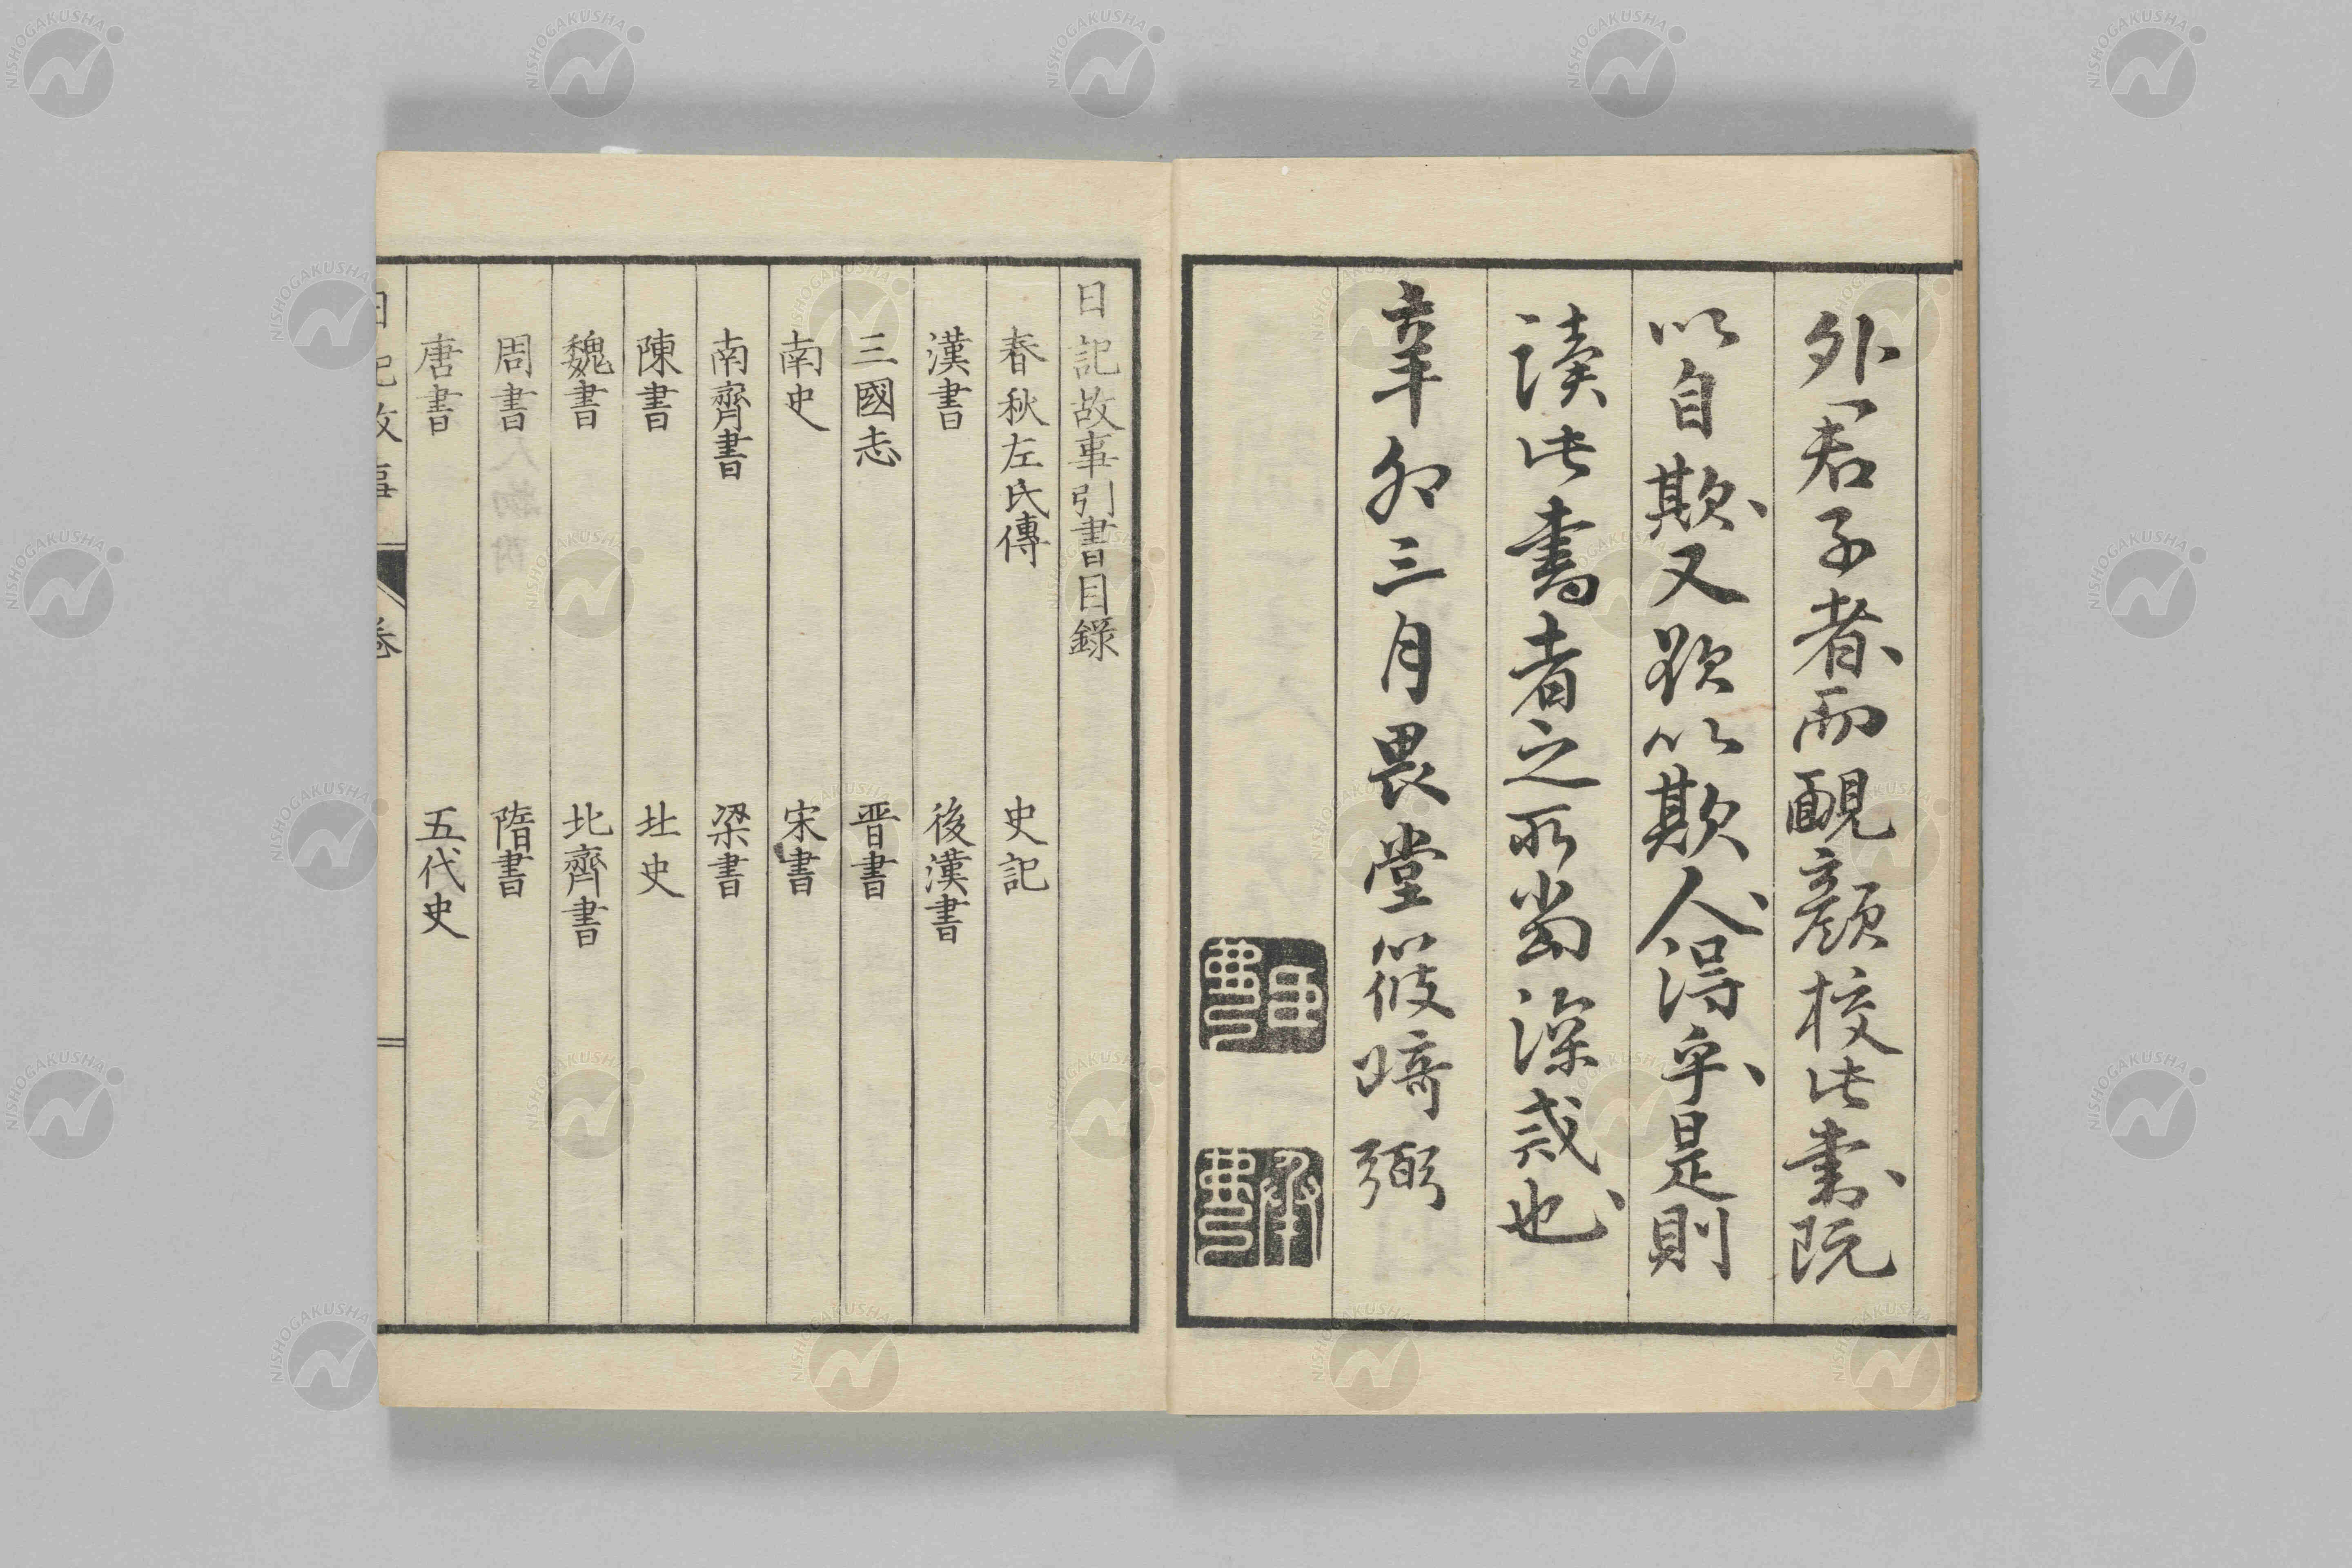 外君子者、而靦顔校此書、既
以自欺、又欲以欺人、得乎、是則
讀此書者之所當深戒也、
辛卯三月畏堂筱﨑弼
日記故事引書目錄
春秋左氏傳 史記
漢書 後漢書
三國志 晋書
南史 宋書
南齊書 梁書
陳書 北史
魏書 北齊書
周書 隋書
唐書 五代史
日記故事 卷
NISHOGAKUSHA